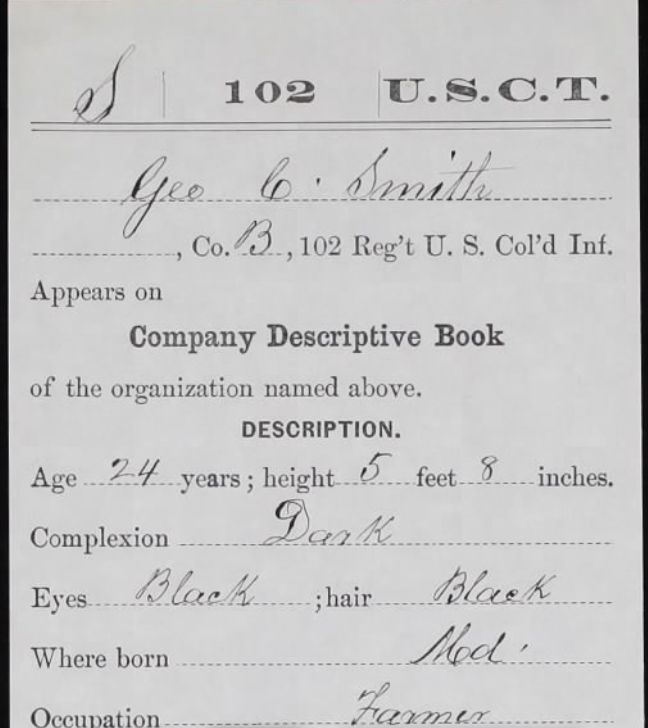 S 102 U.S.C.T.
Geo C. Smith
, Co. B, 102 Reg't U. S. Col'd Inf.
Appears on
Company Descriptive Book
of the organization named above.
DESCRIPTION.
Age 24 years; height 5 feet 8 inches.
Complexion Dark
Eyes Black ; hair Black
Where born Md.
Occupation Farmer